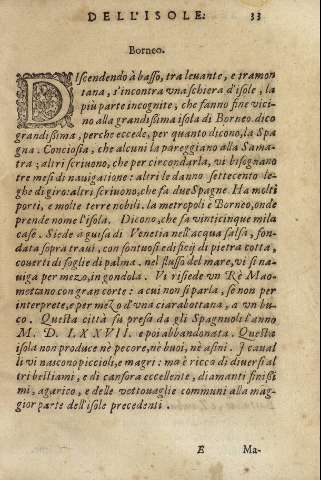 DELL'ISOLE. 33
Borneo.
DIscendendo à basso, tra leuante, e tramon
tana, s'incontra vna schiera d'isole, la
più parte incognite, che fanno fine vici
no alla grandissima isola di Borneo. dico
grandissima, perche eccede, per quanto dicono, la Spa
gna. Conciosia, che alcuni la pareggiano alla Sama-
tra; altri scriuono, che per circondarla, vi bisognano
tre mesi di nauigatione: altri le danno settecento le-
ghe di giro: altri scriuono, che sa due Spagne. Ha molti
porti, e molte terre nobili. la metropoli è Borneo, onde
prende nome l'isola. Dicono, che fa vinticinque mila
case. Siede a guisa di Venetia nell'acqua salsa, fon-
data sopra traui, con sontuosi edificij di pietra cotta,
couerti di foglie di palma. nel flusso del mare, vi si na-
uiga per mezo, in gondola. Vi risiede vn Rè Mao-
mettano con gran corte: a cui non si parla, se non per
interprete, e per mezo d'vna ciarabottana, a vn bu-
co. Questa città fu presa da gli Spagnuoli l'anno
M. D. LXXVII. e poi abbandonata. Questa
isola non produce nè pecore, nè buoi, nè asini. I caual
li vi nascono piccioli, e magri: ma è ricca di diuersi al
tri bestiami, e di canfora eccellente, diamanti finissi
mi, agarico, e delle vottouaglie communi alla mag-
gior parte dell'isole precedenti.
E Ma-